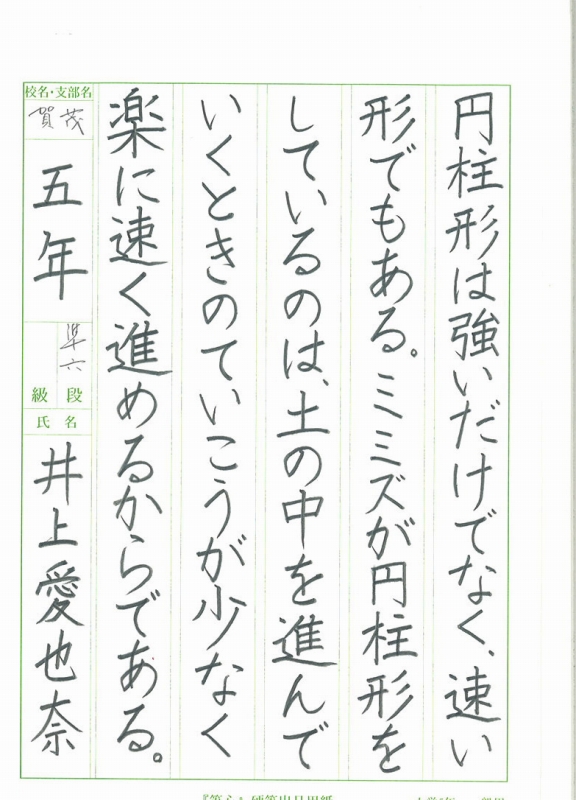 円柱形は強いだけでなく、速い
形でもある。ミミズが円柱形を
しているのは、土の中を進んで
いくときのていこうが少なく
楽に速く進めるからである。
校名・支部名
賀茂
五年
準六
級 段
氏名
井上愛也奈